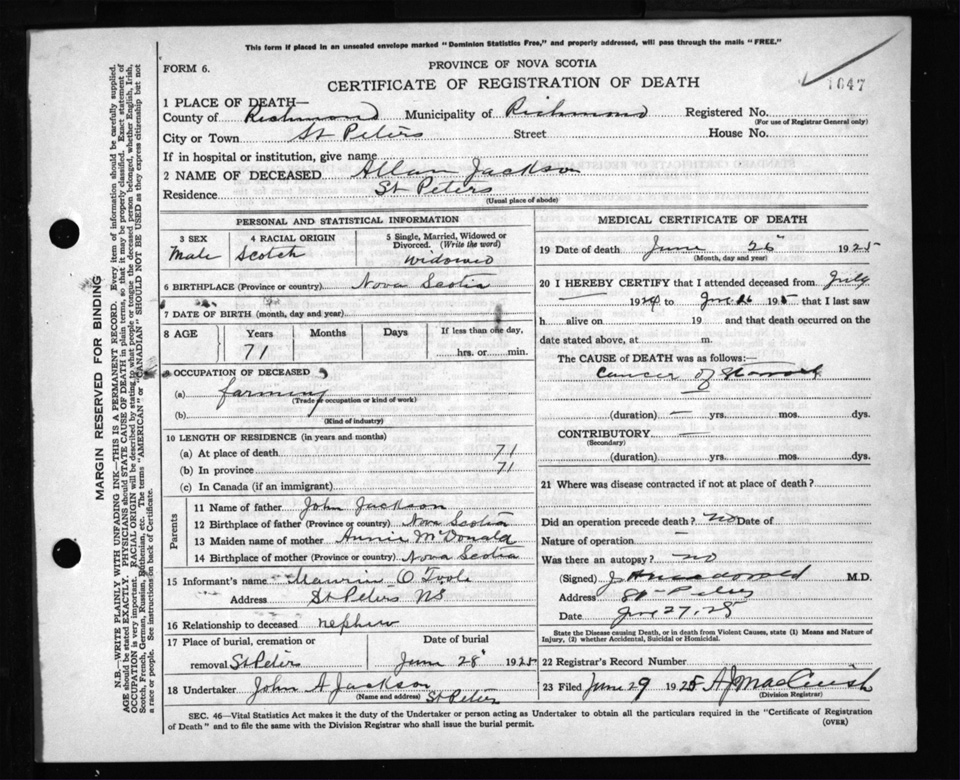 This form if placed in an unsealed envelope marked "Dominion Statistics Free," and properly addressed, will pass through the mails "FREE."
FORM 6.
PROVINCE OF NOVA SCOTIA
CERTIFICATE OF REGISTRATION OF DEATH
1647
1 PLACE OF DEATH—
County of Richmond Municipality of Richmond Registered No.
(For use of Registrar General only)
City or Town St Peters Street House No.
If in hospital or institution, give name
2 NAME OF DECEASED Allan Jackson
Residence St Peters
(Usual place of abode)
PERSONAL AND STATISTICAL INFORMATION
3 SEX 4 RACIAL ORIGIN 5 Single, Married, Widowed or Divorced. (Write the word)
Male Scotch Widowed
6 BIRTHPLACE (Province or country) Nova Scotia
7 DATE OF BIRTH (month, day and year)
8 AGE Years Months Days If less than one day,
71 hrs. or min.
9 OCCUPATION OF DECEASED
(a) farming
(Trade or occupation or kind of work)
(b)
(Kind of industry)
10 LENGTH OF RESIDENCE (in years and months)
(a) At place of death 71
(b) In province 71
(c) In Canada (if an immigrant)
Parents
11 Name of father John Jackson
12 Birthplace of father (Province or country) Nova Scotia
13 Maiden name of mother Annie McDonald
14 Birthplace of mother (Province or country) Nova Scotia
15 Informant's name O Toole
Address St Peters NS
16 Relationship to deceased nephew
17 Place of burial, cremation or Date of burial
removal St Peters June 28 1925
18 Undertaker John A Jackson
(Name and address) St Peters
MEDICAL CERTIFICATE OF DEATH
19 Date of death June 26 1925
(Month, day and year)
20 I HEREBY CERTIFY that I attended deceased from July
— 1924 to June 26 1925 that I last saw
h alive on 19 and that death occurred on the
date stated above, at m.
The CAUSE of DEATH was as follows:—
Cancer of Stomach
(duration) — yrs. mos. dys.
CONTRIBUTORY —
(Secondary)
(duration) yrs. mos. dys.
21 Where was disease contracted if not at place of death?
Did an operation precede death? No Date of
Nature of operation —
Was there an autopsy? no
(Signed) M.D.
Address St Peters
Date June 27, 25
State the Disease causing Death, or in death from Violent Causes, state (1) Means and Nature of
Injury, (2) whether Accidental, Suicidal or Homicidal.
22 Registrar's Record Number
23 Filed June 29 1925 A J MacCuish
(Division Registrar)
SEC. 46—Vital Statistics Act makes it the duty of the Undertaker or person acting as Undertaker to obtain all the particulars required in the "Certificate of Registration
of Death" and to file the same with the Division Registrar who shall issue the burial permit. (OVER)
MARGIN RESERVED FOR BINDING
N.B.—WRITE PLAINLY WITH UNFADING INK—THIS IS A PERMANENT RECORD. Every item of information should be carefully supplied.
AGE should be stated EXACTLY. PHYSICIANS should STATE CAUSE OF DEATH in plain terms, so that it may be properly classified. Exact statement of
OCCUPATION is very important. RACIAL ORIGIN will be described by stating to what people or tongue the deceased person belonged, whether English, Irish,
Scotch, French, German, Russian, Ruthenian, etc. The terms "AMERICAN" or "CANADIAN" SHOULD NOT BE USED as they express citizenship but not
a race or people. See instructions on back of Certificate.